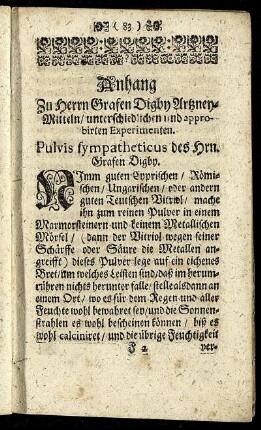 ( 83 )
Anhang
Zu Herrn Grafen Digby Artzney-
Mitteln / unterschiedlichen und appro-
birten Experimenten.
Pulvis sympatheticus des Hrn.
Grafen Digby.
NImm guten Cyprischen / Römi-
schen / Ungarischen / oder andern
guten Teutschen Vitriol / mache
ihn zum reinen Pulver in einem
Marmorsteinern und keinem Metallischen
Mörsel / (dann der Vitriol wegen seiner
Schärffe oder Säure die Metallen an-
greifft) dieses Pulver lege auf ein eichenes
Bret / um welches Leisten sind / daß im herum-
rühren nichts herunter falle / stelle alsdann an
einem Ort / wo es für dem Regen und aller
Feuchte wohl bewahret sey / und die Sonnen-
strahlen es wohl bescheinen können / biß es
wohl calciniret / und die übrige Feuchtigkeit
F 2 ver-